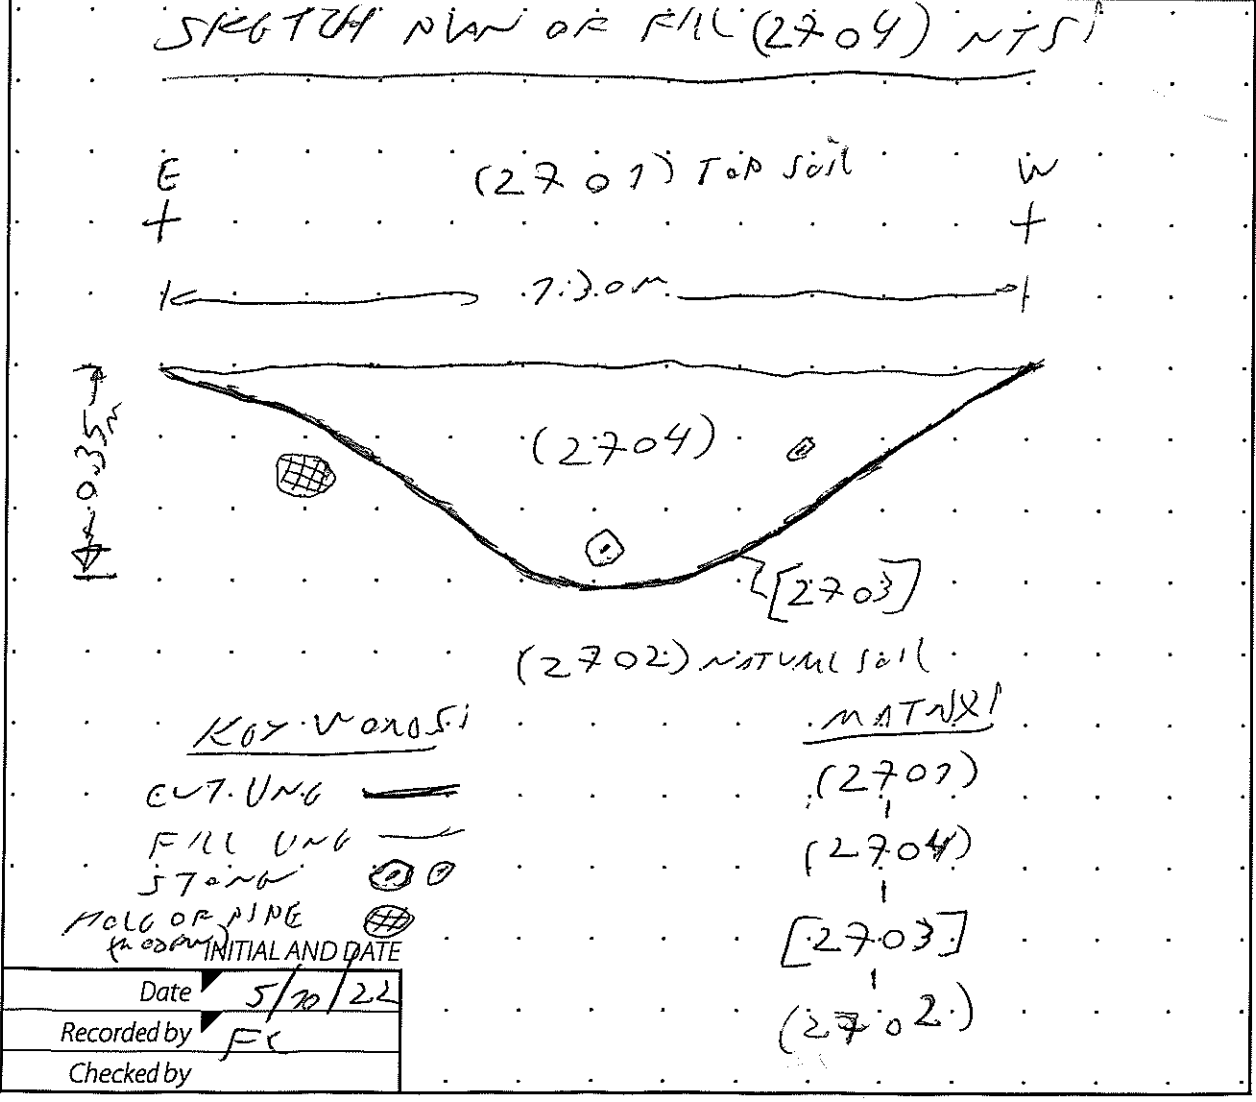 SKETCH PLAN OF FILL (2704) NTS!
E (2701) TOP SOIL W
1.30M
0.35M
(2704)
[2703]
(2702) NATURAL SOIL
KEY WORDS:
CUT LINE
FILL LINE
STONE
HOLE OF PIPE
(MODERN)
MATRIX!
(2701)
(2704)
[2703]
(2702)
INITIAL AND DATE
Date 5/10/22
Recorded by FC
Checked by